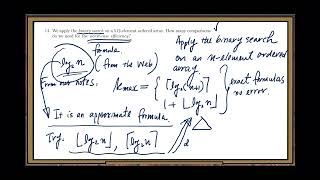 14. We apply the binary search on a 535-element ordered array. How many comparisons
do we need for the worst-case efficiency?
Apply the binary search
on an n-element ordered
array
formula
(from the Web)
log₂ n
From our notes.
Kmax = { ⌈lg₂(n+1)⌉
1 + ⌊lg₂ n⌋ }
exact formulas
no error.
It is an approximate formula.
Try. ⌊lg₂ n⌋, ⌈lg₂ n⌉